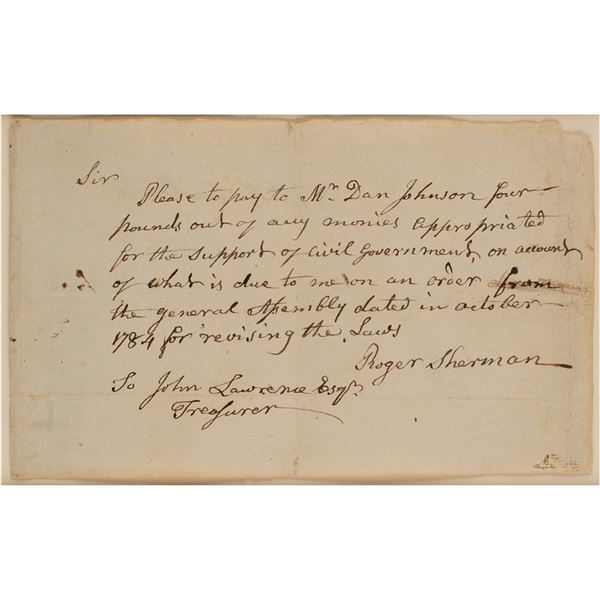 Sir
Please to pay to Mr. Dan Johnson four
pounds out of any monies appropriated
for the Support of Civil Government, on account
of what is due to me on an order from
the general Assembly dated in october
1784 for revising the Laws
Roger Sherman
To John Lawrence Esqr.
Treasurer